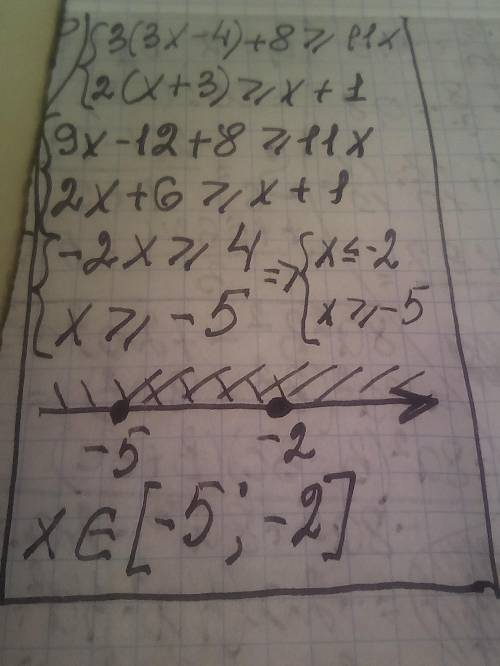 {3(3x-4)+8 ⩾ 11x
{2(x+3) ⩾ x+1
{9x-12+8 ⩾ 11x
{2x+6 ⩾ x+1
{-2x ⩾ 4 => {x ≤ -2
{x ⩾ -5 {x ⩾ -5
-5 -2
x ∈ [-5; -2]